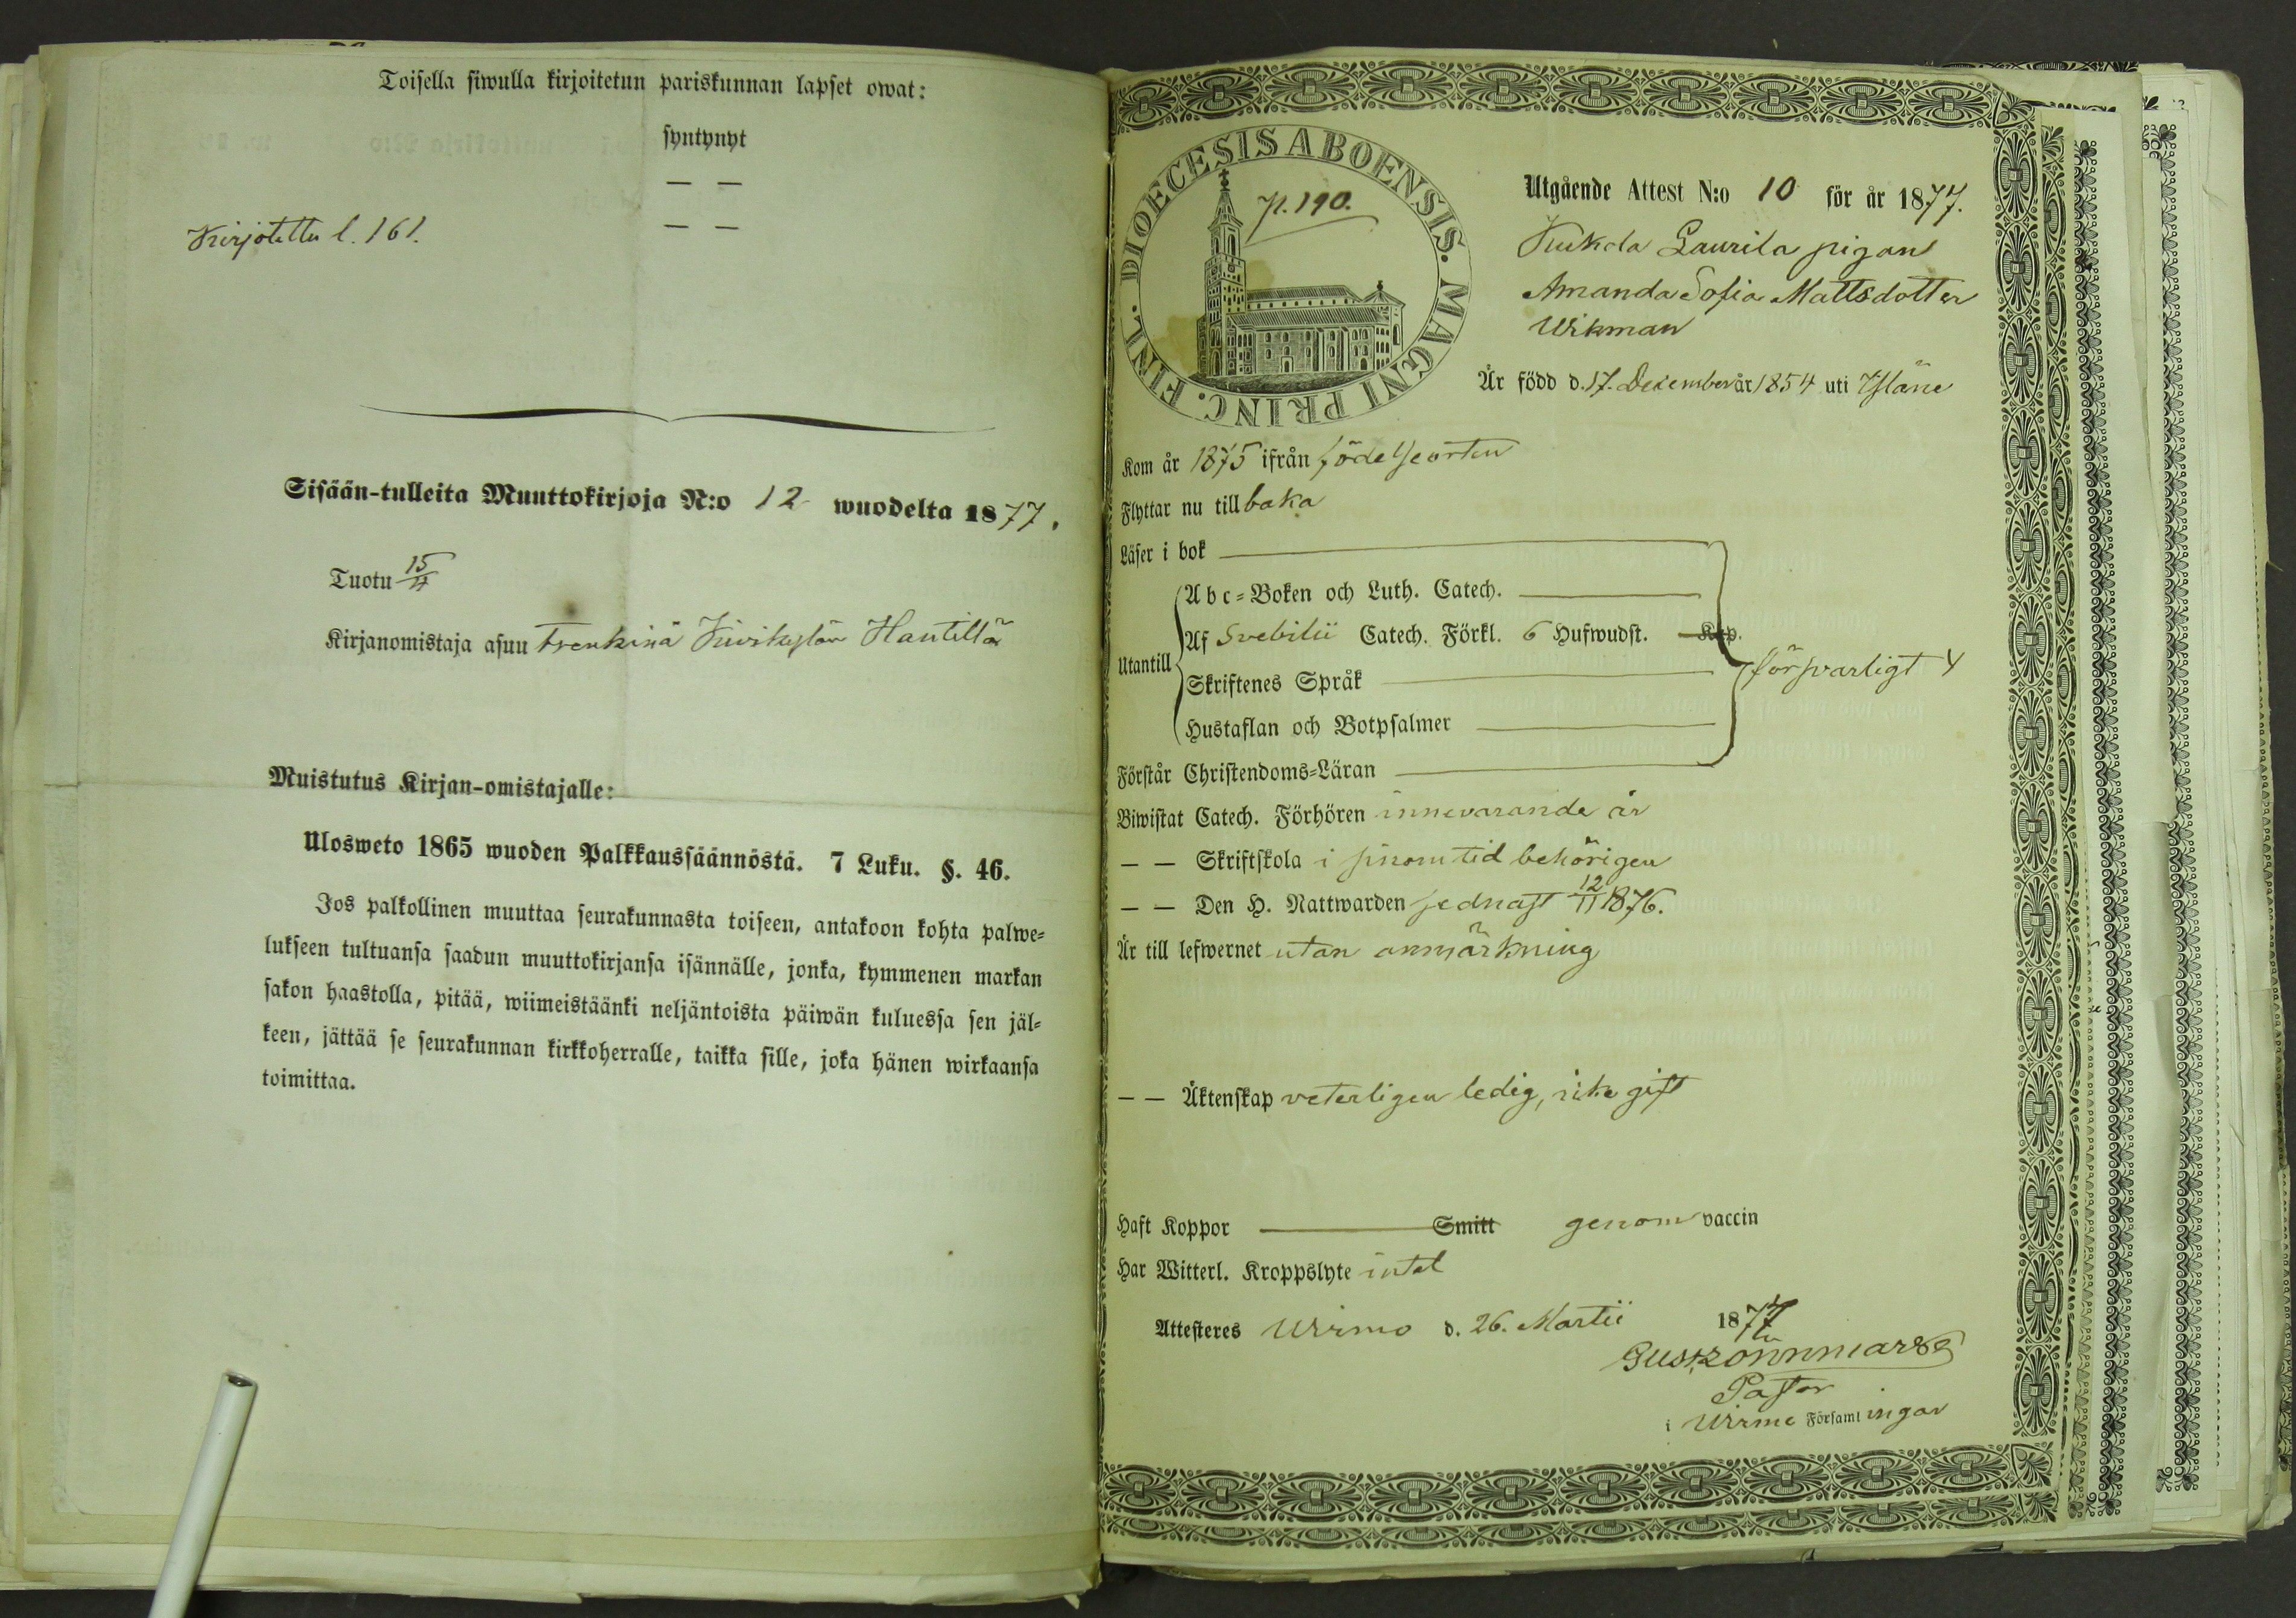 Toisella siwulla kirjoitetun pariskunnan lapset owat:
syntynyt
— —
— —
Kirjotettu l. 161.
Sisään-tulleita Muuttokirjoja N:o 12 wuodelta 1877.
Tuotu 15/4
Kirjanomistaja asuu Trenkinä Kivikylän Hantillä
Muistutus Kirjan-omistajalle:
Ulosweto 1865 wuoden Palkkaussäännöstä. 7 Luku. §. 46.
Jos palkollinen muuttaa seurakunnasta toiseen, antakoon kohta palwe=
lukseen tultuansa saadun muuttokirjansa isännälle, jonka, kymmenen markan
sakon haastolla, pitää, wiimeistäänki neljäntoista päiwän kuluessa sen jäl=
keen, jättää se seurakunnan kirkkoherralle, taikka sille, joka hänen wirkaansa
toimittaa.
DIOECESIS ABOENSIS. MAGNI PRINC. FINL.
p. 190.
Utgående Attest N:o 10 för år 1877.
Kukola Laurila pigan
Amanda Sofia Mattsdotter
Wikman
Är född d. 17. December år 1854 uti Yläne
Kom år 1875 ifrån födelseorten
Flyttar nu till baka
Läser i bok
Utantill
Abc=Boken och Luth. Catech.
Af Svebilii Catech. Förkl. 6 Hufwudst. Kap.
Skriftenes Språk
Hustaflan och Botpsalmer
försvarligt
Förstår Christendoms=Läran
Biwistat Catech. Förhören innevarande år
— — Skriftskola i sinom tid behörigen
— — Den H. Nattwarden sednast 12/11 1876.
Är till lefwernet utan anmärkning
— — Äktenskap veterligen ledig, icke gift
Haft Koppor Smitt genom vaccin
Har Witterl. Kroppslyte intet
Attesteres Wirmo d. 26. Martii 1877
Pastor
i Wirmo Församlingar